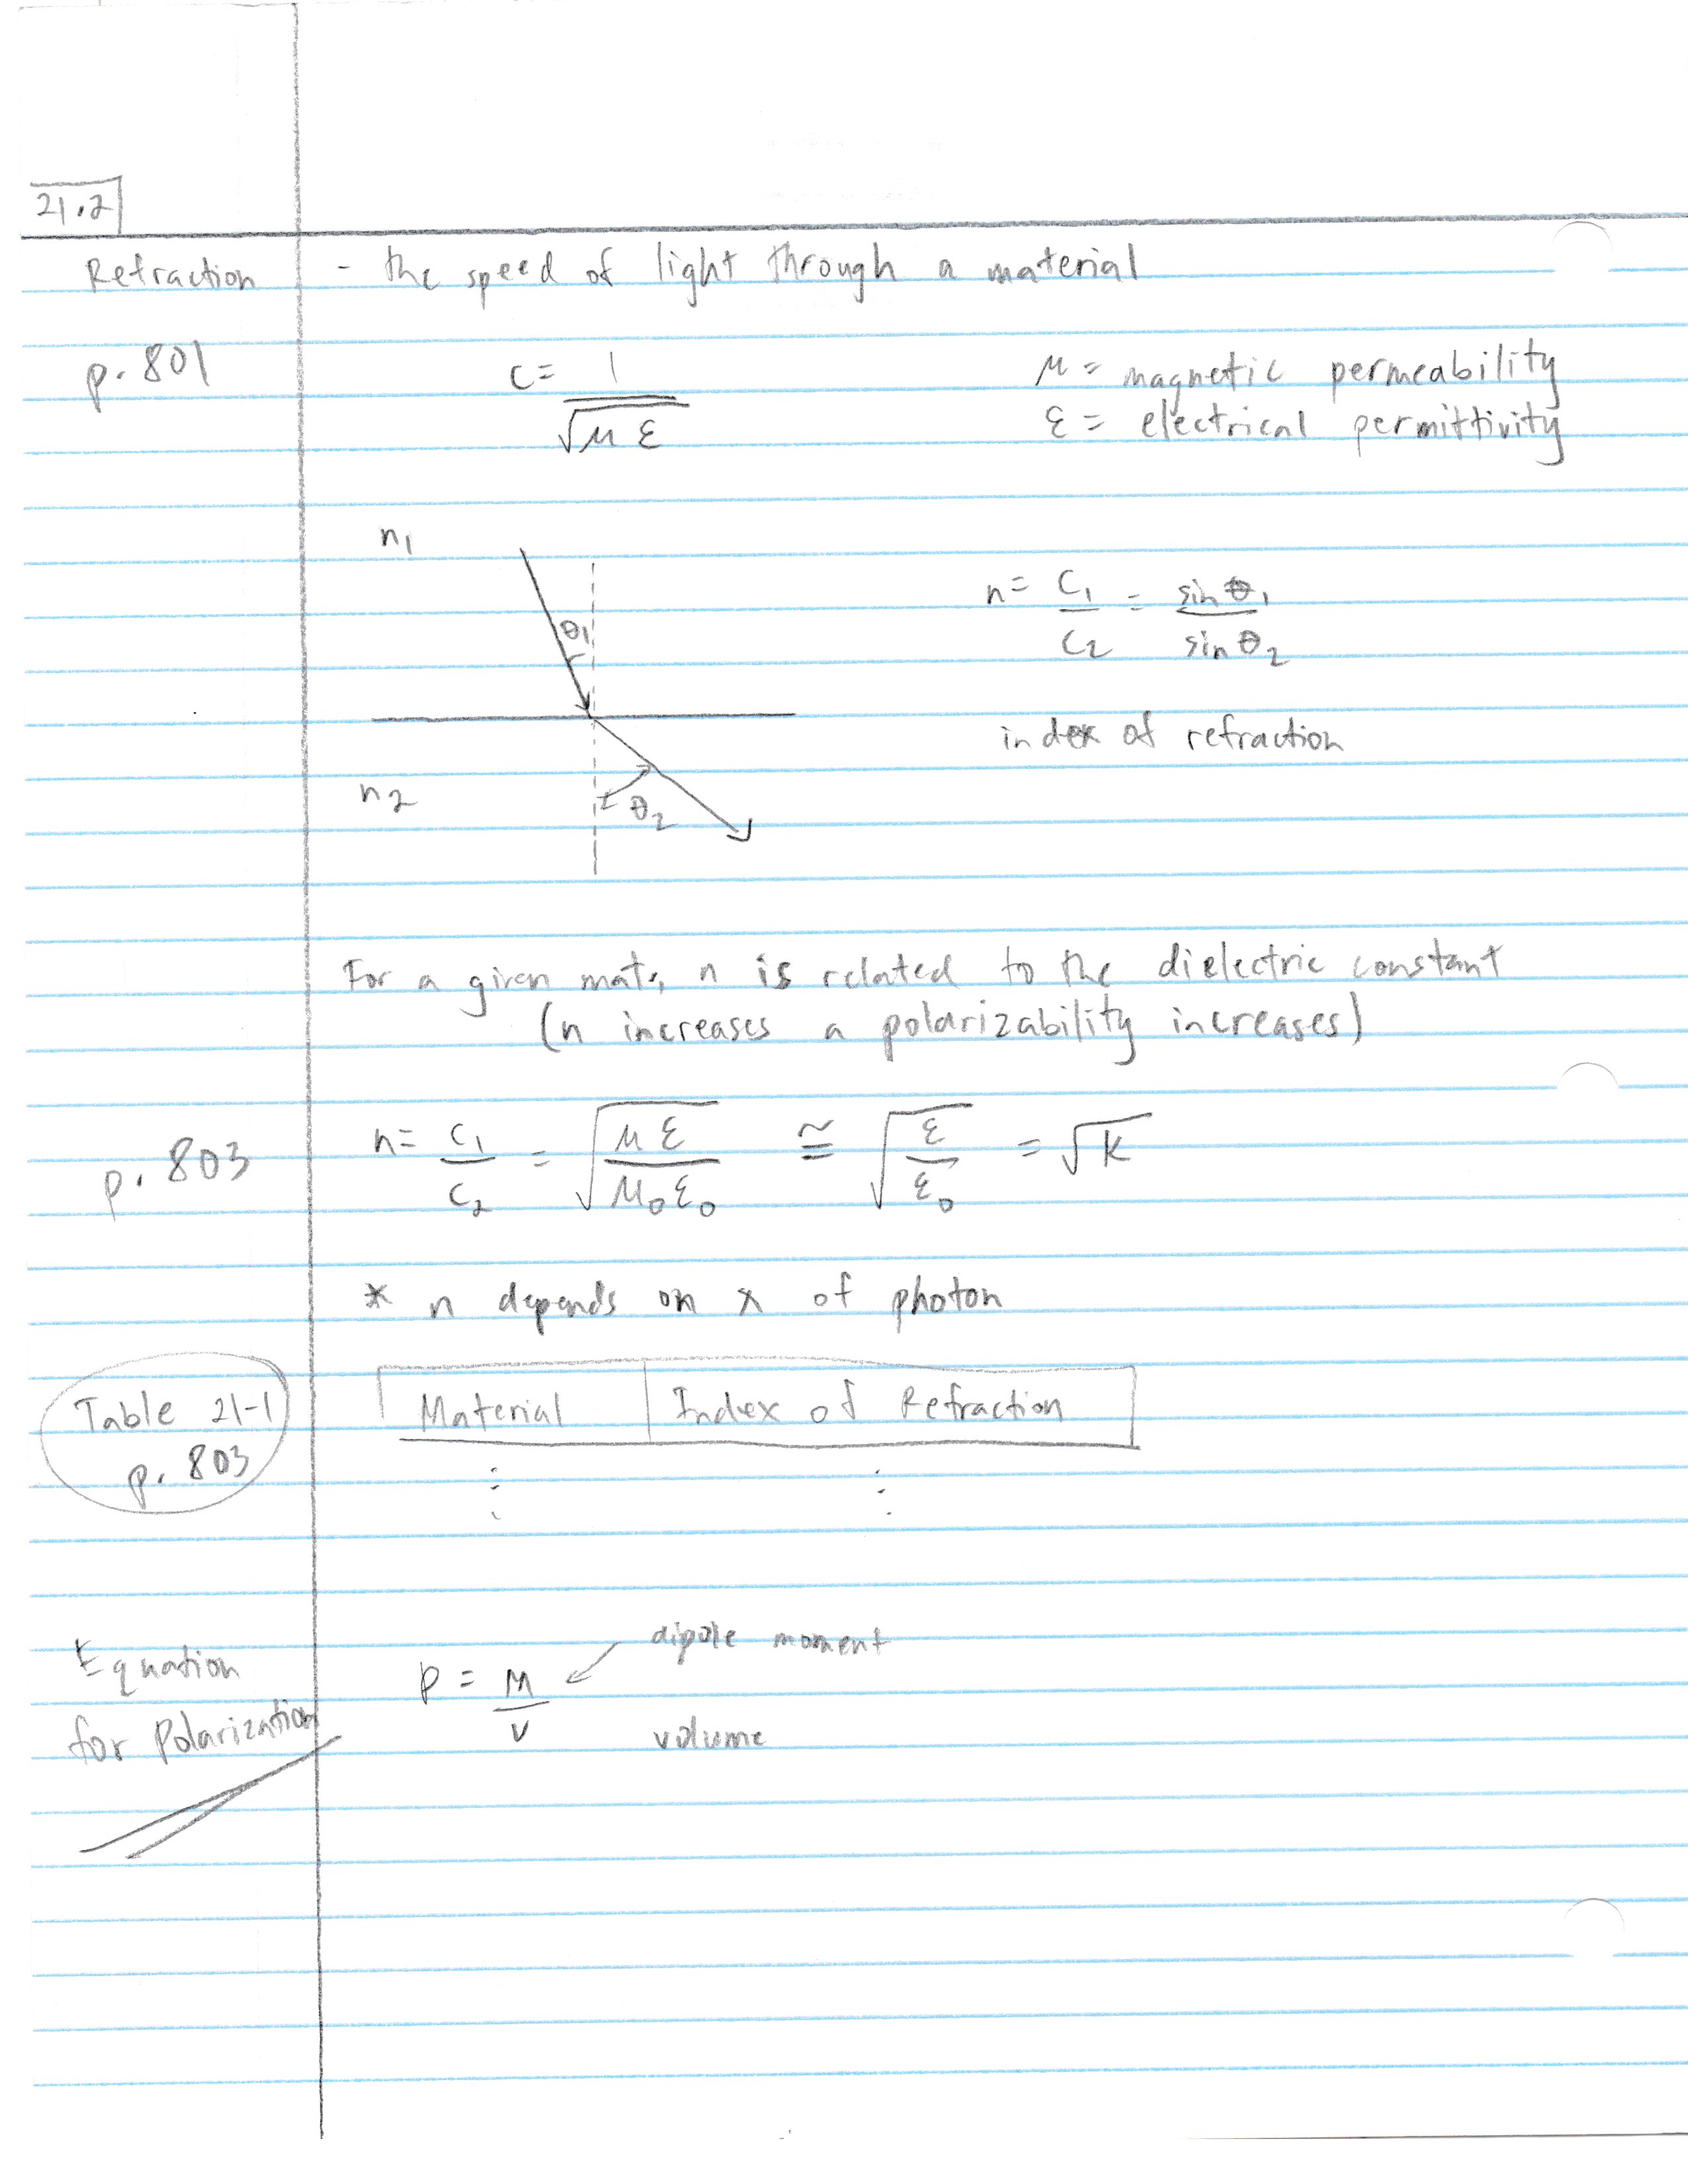 21.2
Refraction - the speed of light through a material
p. 801
c = 1 / √(με)
μ = magnetic permeability
ε = electrical permittivity
n1
θ1
n = c1/c2 = sin θ1 / sin θ2
index of refraction
n2
θ2
For a given mat., n is related to the dielectric constant
(n increases a polarizability increases)
p. 803
n = c1/c2 = √(με/μ0ε0) ≅ √(ε/ε0) = √K
* n depends on λ of photon
Table 21-1
p. 803
Material Index of Refraction
⋮ ⋮
Equation
for Polarization
P = M/V
dipole moment
volume